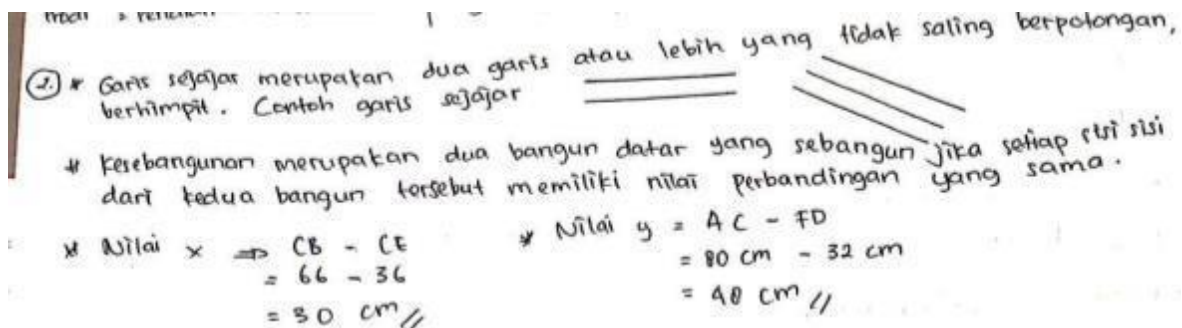 2. * Garis sejajar merupakan dua garis atau lebih yang tidak saling berpotongan,
berhimpit. Contoh garis sejajar
* Kesebangunan merupakan dua bangun datar yang sebangun jika setiap sisi sisi
dari kedua bangun tersebut memiliki nilai perbandingan yang sama.
* Nilai x ⇒ CB - CE
= 66 - 36
= 30 cm //
* Nilai y = AC - FD
= 80 cm - 32 cm
= 48 cm //